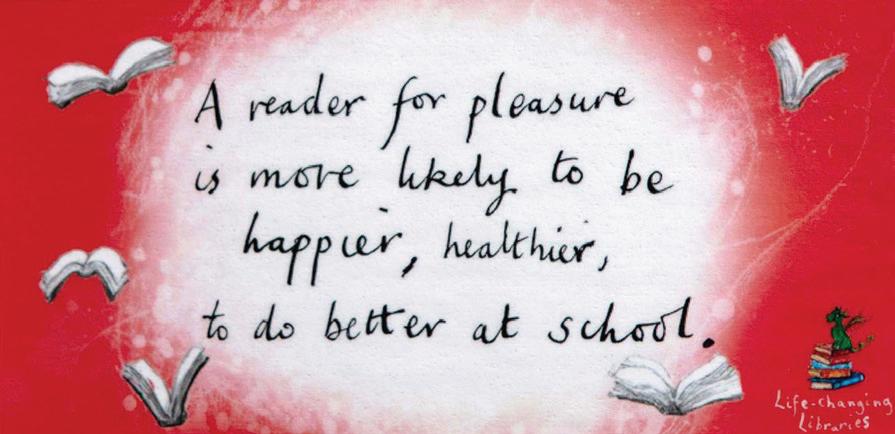 A reader for pleasure
is more likely to be
happier, healthier,
to do better at school.
Life-changing
Libraries